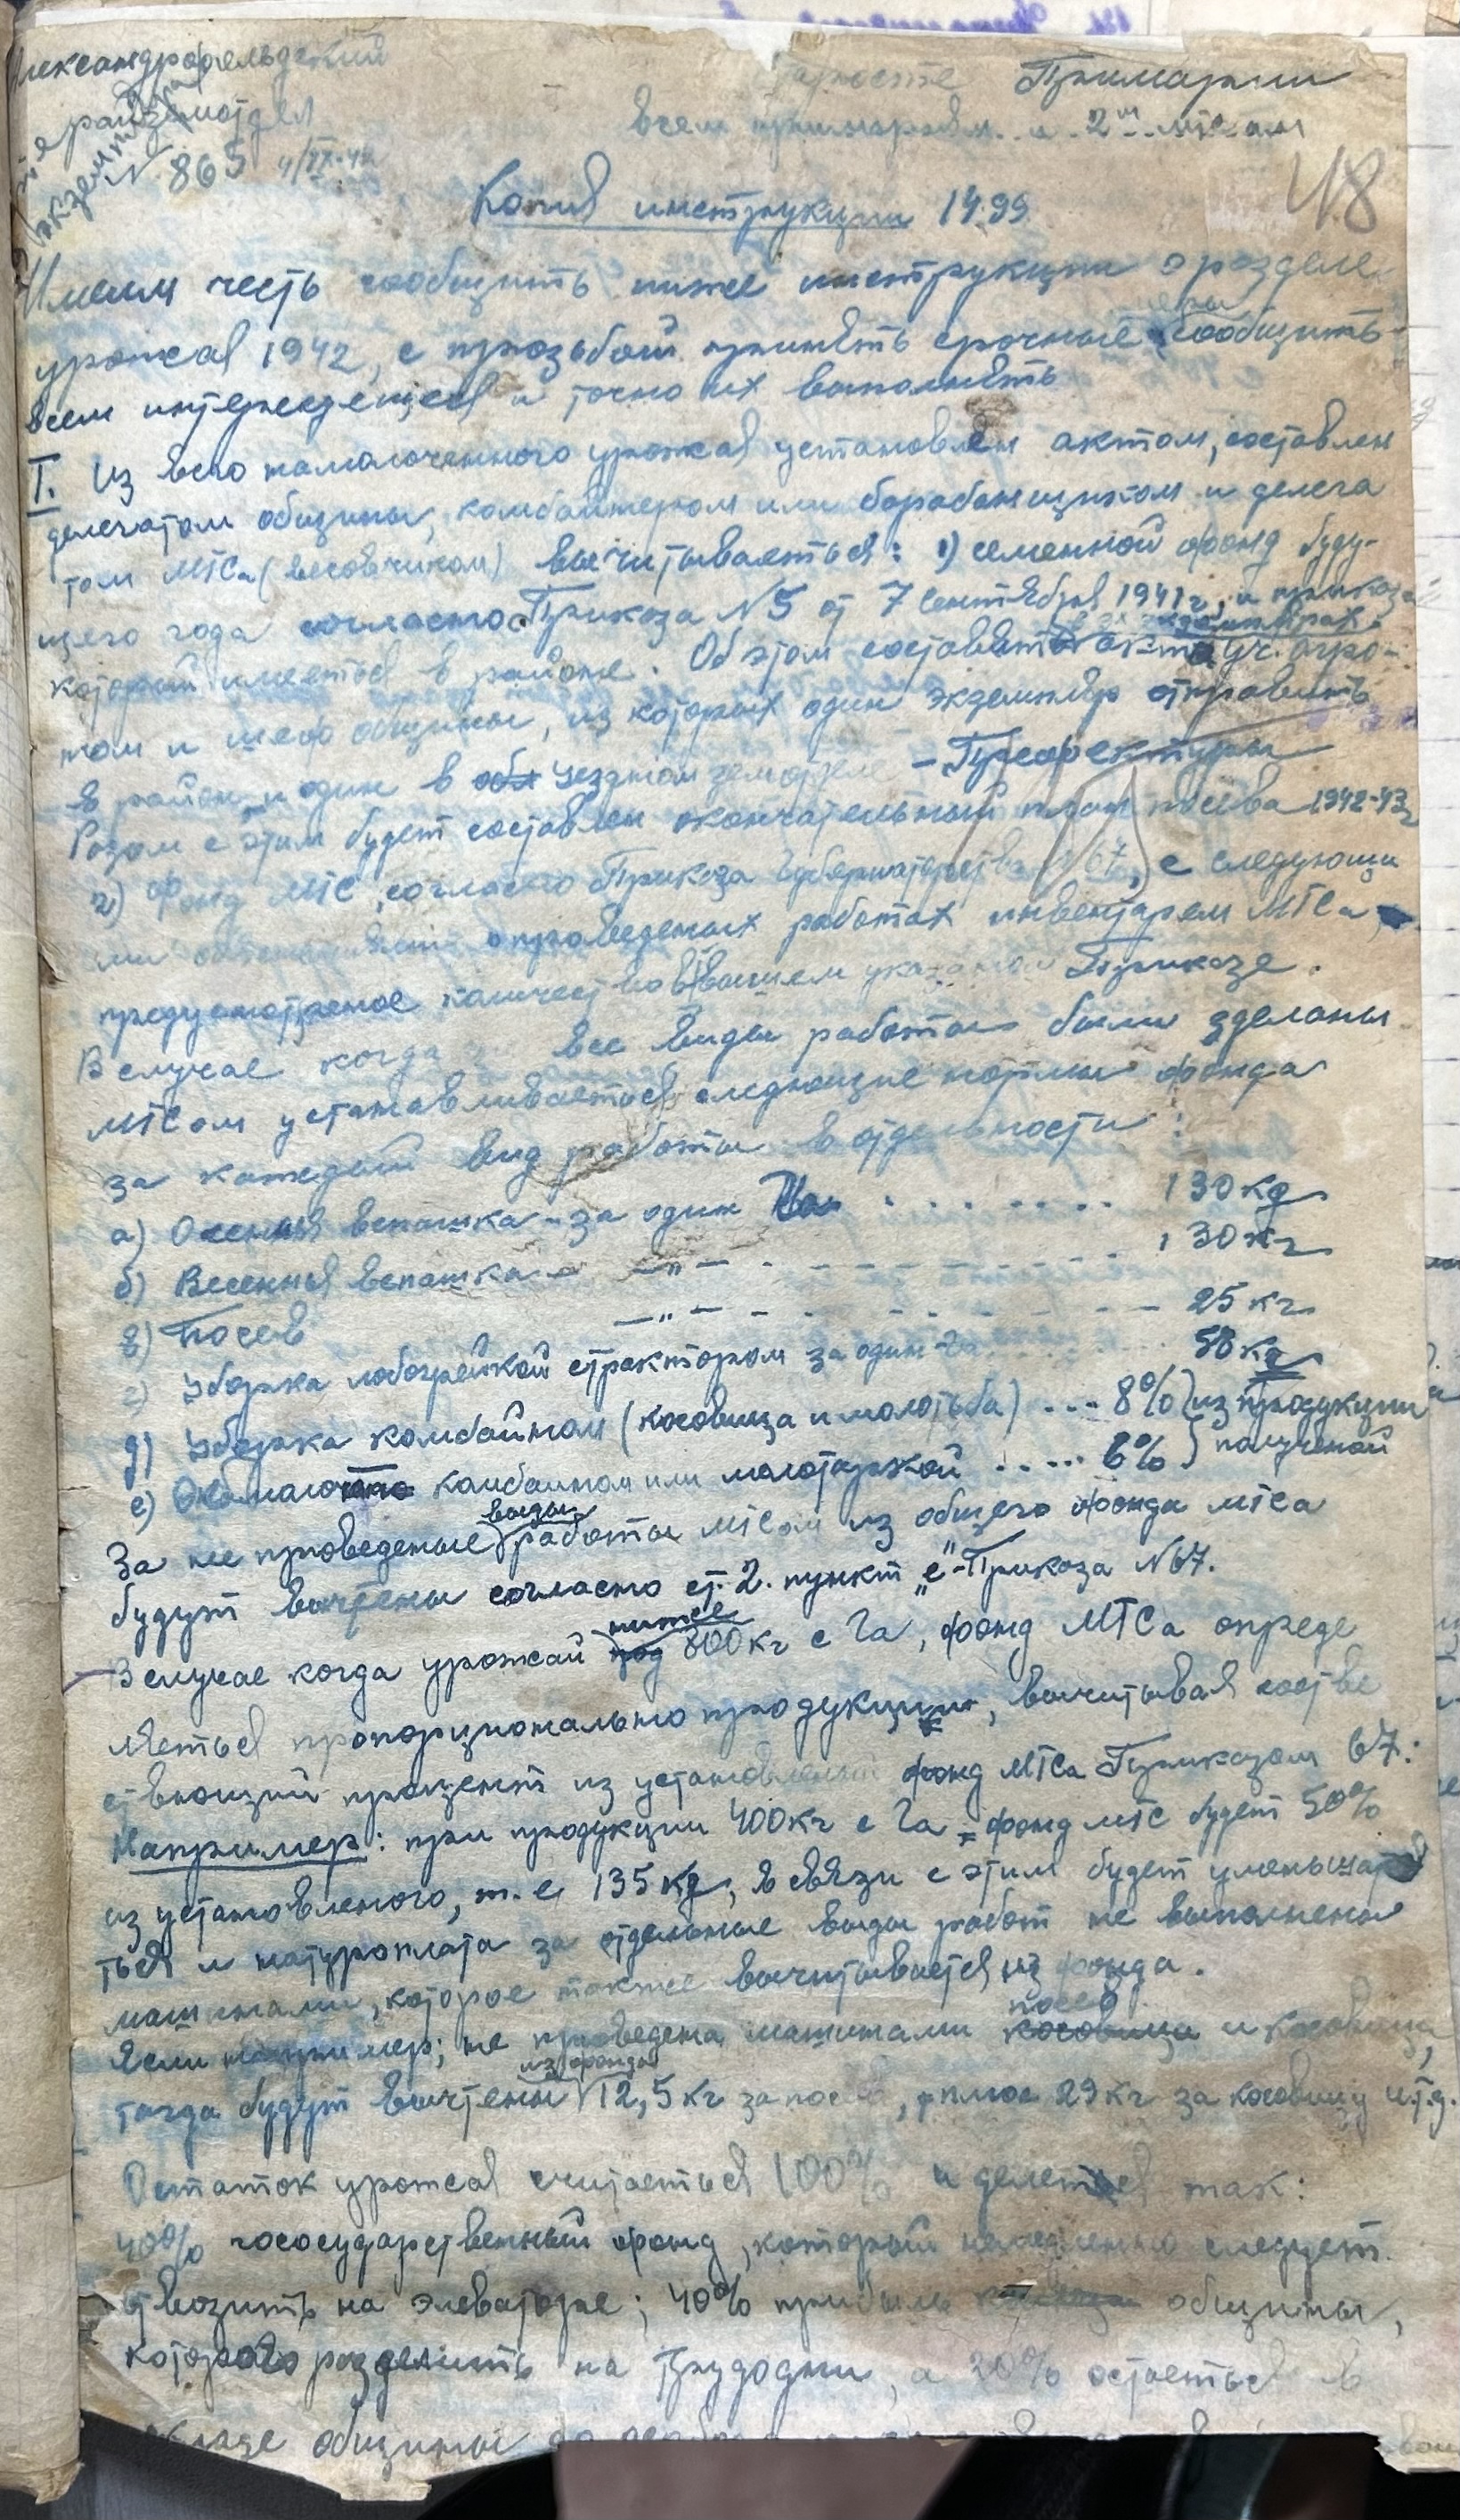 Александрофельдский
райземотдел
экземпляр
N 865 4/IX-42
Старосте Примарии
всем примариям и 2м МТСам
48
Копия инструкции 1499
Имеем честь сообщить ниже инструкции о разделе
урожая 1942, с прозьбой принять срочные меры сообщить
всем интересующейся и точно их выполнять
I. Из всего намолоченного урожая установлен актом, составлен
делегатом общины, комбайнером или барабанщиком и делега
том МТСа (весовчиком) вычитывается: 1) семенной фонд буду-
щего года согласно Приказа N5 от 7 Сентября 1941г, и приказа
который имеется в районе. Об этом составить акт уч. агро-
ном и шеф общины, из которых один экземпляр отправить
в район и один в уездном земотделе - Префектуры
Разом с этим будет составлен окончательный план посева 1942-43г
2) Фонд МТС, согласно Приказа Губернаторства N67, с следующи
ми проведеных работах инвентарем МТСа,
предусмотреное количество в вышем указаном Приказе.
В случае когда все виды работы были зделаны
МТСом устанавливается следующие нормы фонда
за каждый вид работы в отдельности:
а) Осенняя вспашка - за один Га . . . . . . . 130 кg
б) Весенняя вспашка -"- - - - - - - - 130 кг
в) Посев -"- - - - - - - - 25 кг
г) Уборка лобогрейкой с трактором за один га . . . . . 58 кg
д) Уборка комбайном (косовица и молотьба) . . . 8% } из продукции
е) Обмолочено комбайном или молотаркой . . . . . 6% } полученой
За не проведеные виды работы МТСом из общего фонда МТСа
будут вычтены согласно ст. 2. пункт „е"-Приказа N67.
В случае когда урожай ниже 800кг с Га, фонд МТСа опреде
ляеться пропорционально продукции, вычитывая соотве
ствующий процент из установленый фонд МТСа Приказом 67.:
Например: при продукции 400кг с Га = фонд МТС будет 50%
из установленого, т. е. 135 кg, в связи с этим будет уменьшать
ться и натуроплата за отдельные виды работ не выполнены
машинами, которое также вычитывается из фонда.
Если например; не проведена машинами посев и косовица,
тогда будут вычтены из фонда 12,5 кг за посев, плюс 29 кг за косовицу и.т.д.
Остаток урожая считаеться 100% и делеться так:
40% гососударственный фонд, который немедленно следует
отвозить на элеваторе; 40% прибыль общины,
которого разделить на трудодни, а 20% остаеться в
складе общины